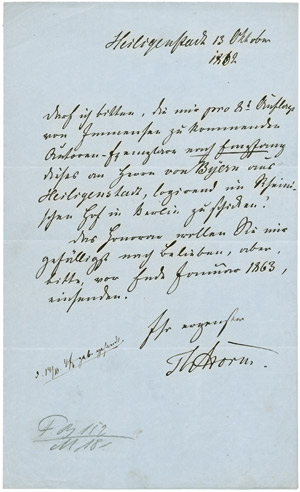 Heiligenstadt 13 Oktober
1862.
Darf ich bitten, die mir pro 8t Auflage
von Immensee zu kommenden
Autoren-Exemplare nach Empfang
dieses an Herrn von Byern aus
Heiligenstadt, logirend im Rheini-
schen Hof in Berlin zu schicken?
Das Honorar wollen Sie mir
gefälligst nach Belieben, aber,
bitte, vor Ende Januar 1863,
einsenden.
Ihr ergebener
ThStorm.